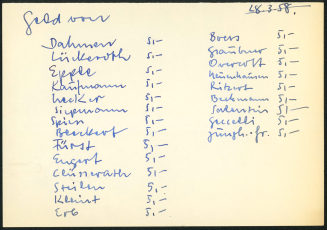 Geld von
28.3.58.
Dahmen 5,-
Lückeroth 5,-
Epple 5,-
Kaufmann 5,-
Hecker 5,-
Siepmann 5,-
Spies 5,-
Beeckert 5,-
Fürst 5,-
Engert 5,-
Clüsserath 5,-
Stellen 5,-
Kleint 5,-
Erb 5,-
Boers 5,-
Graubner 5,-
Overcott 5,-
5,-
Ritzert 5,-
Beckmann 5,-
5,-
Geccelli 5,-
Jüngl. fr. 5,-